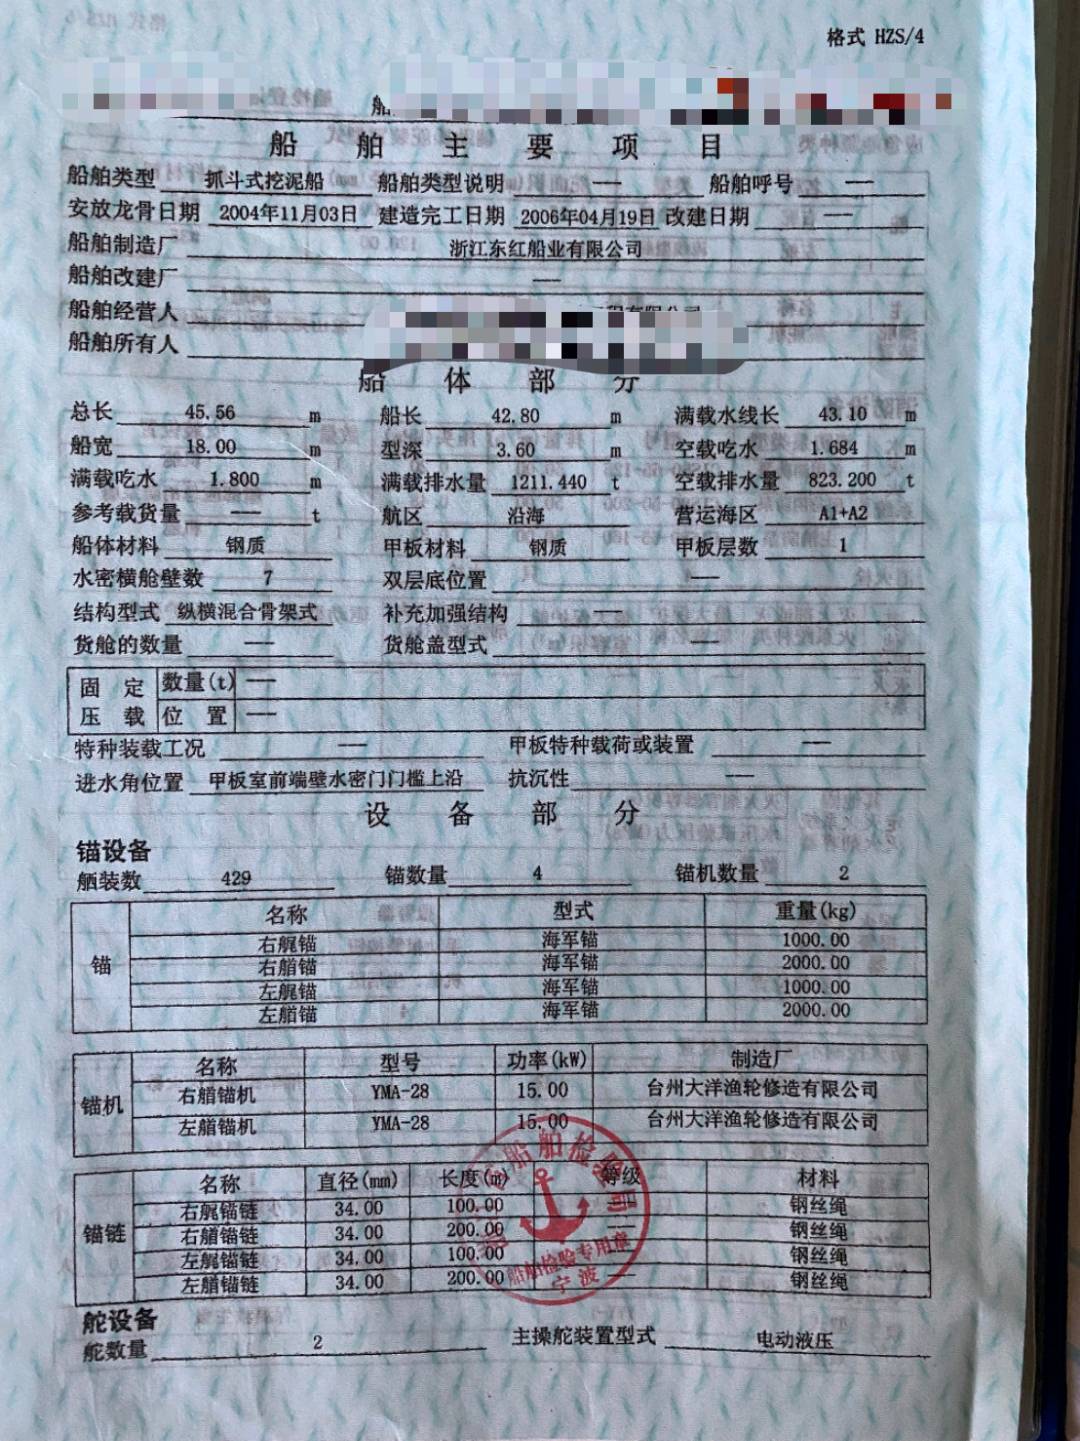 格式 HZS/4
船
船舶主要项目
船舶类型 抓斗式挖泥船 船舶类型说明 —— 船舶呼号 ——
安放龙骨日期 2004年11月03日 建造完工日期 2006年04月19日 改建日期 ——
船舶制造厂 浙江东红船业有限公司
船舶改建厂 ——
船舶经营人
船舶所有人
船体部分
总长 45.56 m 船长 42.80 m 满载水线长 43.10 m
船宽 18.00 m 型深 3.60 m 空载吃水 1.684 m
满载吃水 1.800 m 满载排水量 1211.440 t 空载排水量 823.200 t
参考载货量 —— t 航区 沿海 营运海区 A1+A2
船体材料 钢质 甲板材料 钢质 甲板层数 1
水密横舱壁数 7 双层底位置 ——
结构型式 纵横混合骨架式 补充加强结构 ——
货舱的数量 —— 货舱盖型式 ——
固定 数量(t) ——
压载 位置 ——
特种装载工况 —— 甲板特种载荷或装置 ——
进水角位置 甲板室前端壁水密门门槛上沿 抗沉性 ——
设备部分
锚设备
舾装数 429 锚数量 4 锚机数量 2
锚 名称 型式 重量(kg)
右艉锚 海军锚 1000.00
右艏锚 海军锚 2000.00
左艉锚 海军锚 1000.00
左艏锚 海军锚 2000.00
锚机 名称 型号 功率(kW) 制造厂
右艏锚机 YMA-28 15.00 台州大洋渔轮修造有限公司
左艏锚机 YMA-28 15.00 台州大洋渔轮修造有限公司
锚链 名称 直径(mm) 长度(m) 等级 材料
右艉锚链 34.00 100.00 —— 钢丝绳
右艏锚链 34.00 200.00 —— 钢丝绳
左艉锚链 34.00 100.00 钢丝绳
左艏锚链 34.00 200.00 —— 钢丝绳
船舶检验局
船舶检验专用章
宁波
舵设备
舵数量 2 主操舵装置型式 电动液压